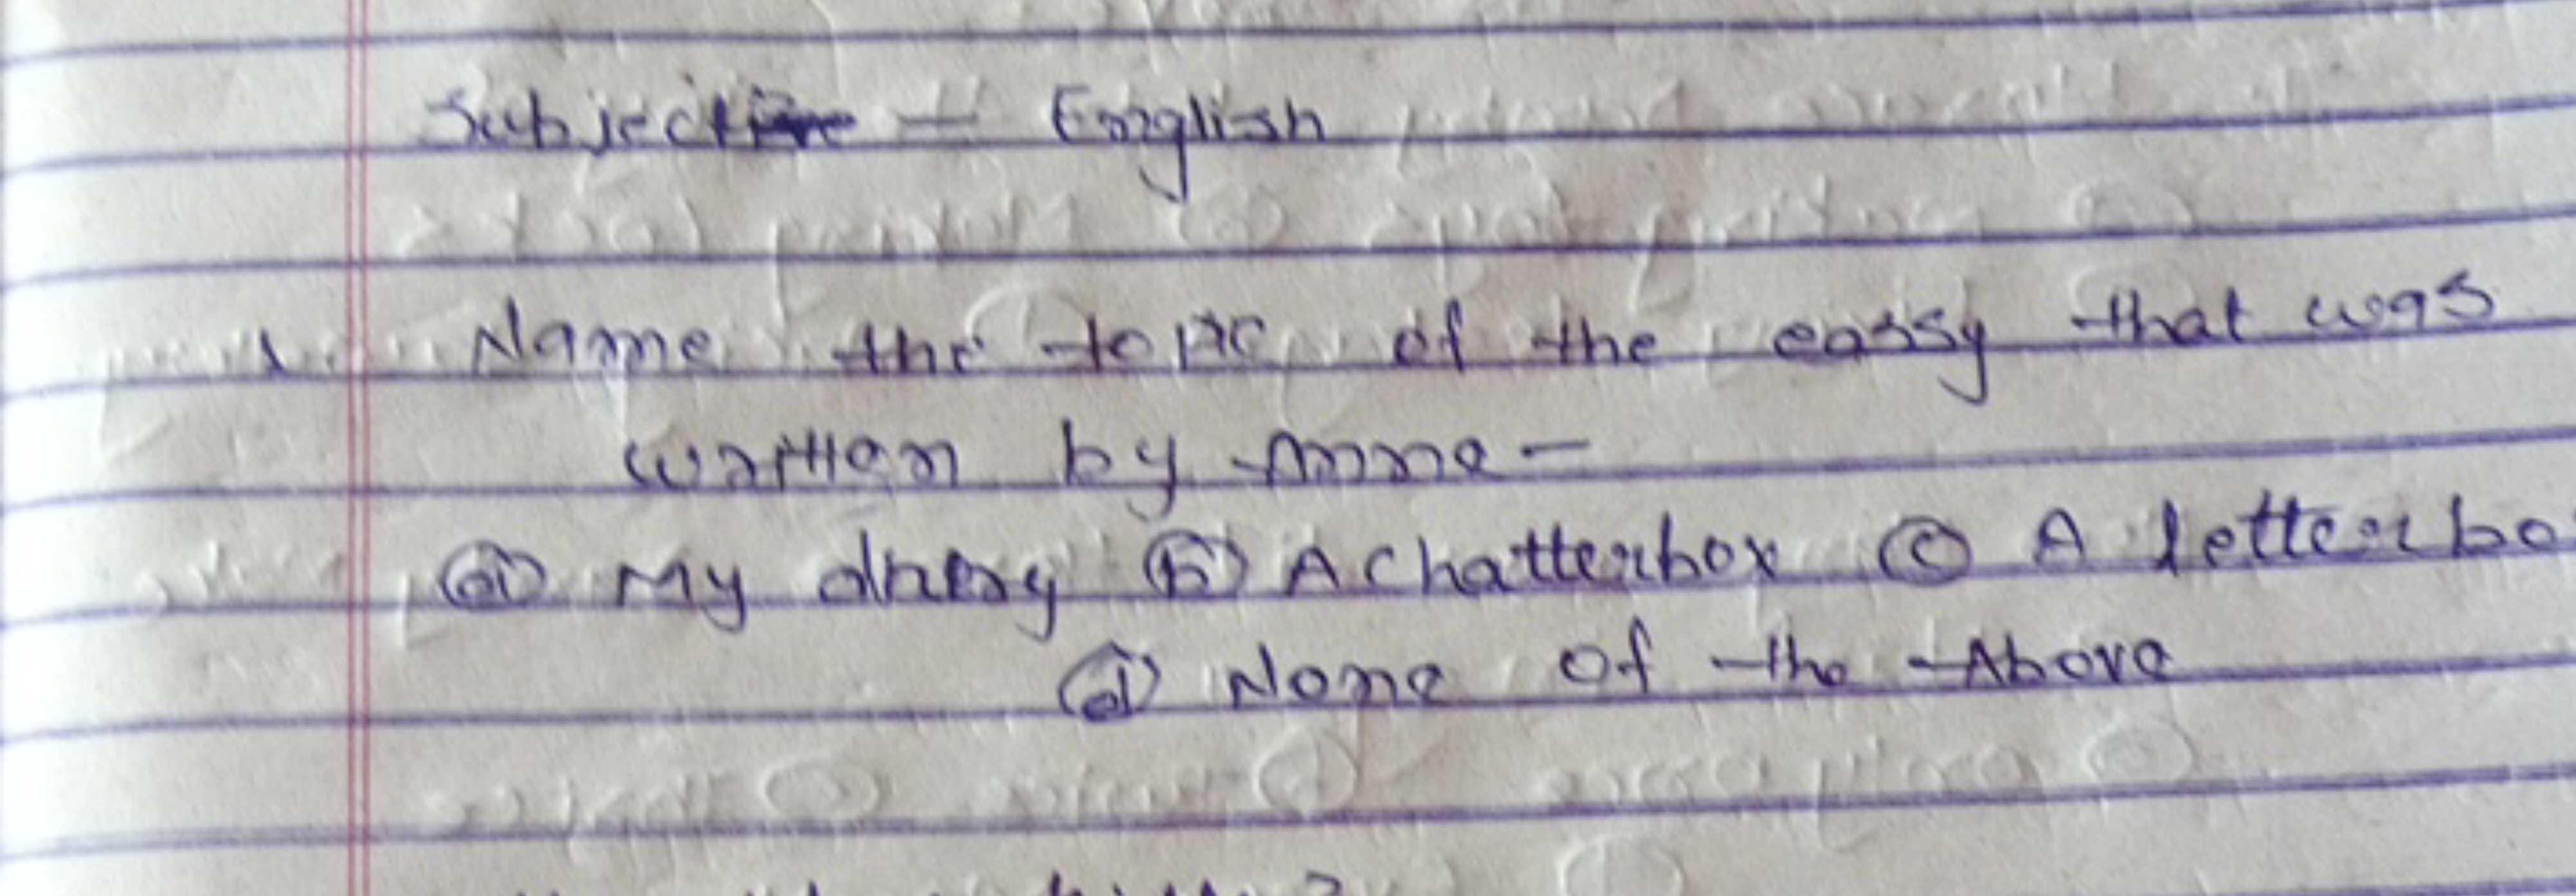 Subject - English
1. Name the topic of the eassy that was
written by Anne-
(a) My diary (b) A Chatterbox (c) A letterbo
(d) None of the Above